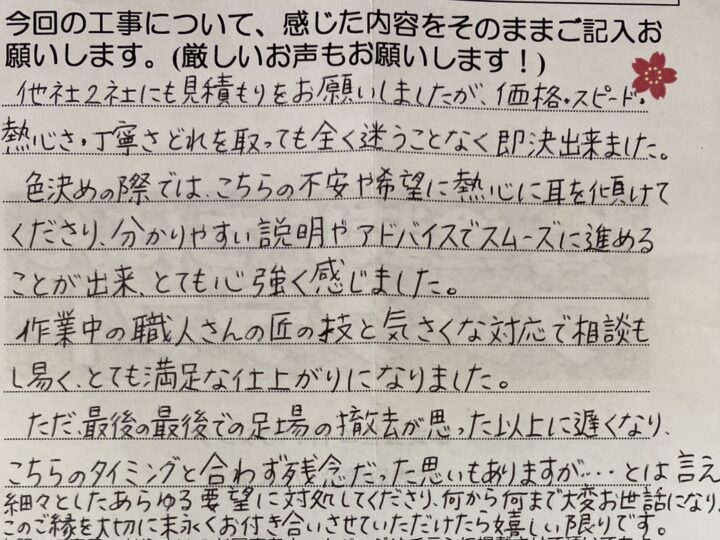 今回の工事について、感じた内容をそのままご記入お
願いします。(厳しいお声もお願いします！)
他社2社にも見積もりをお願いしましたが、価格・スピード・
熱心さ・丁寧さどれを取っても全く迷うことなく即決出来ました。
色決めの際では、こちらの不安や希望に熱心に耳を傾けて
くださり、分かりやすい説明やアドバイスでスムーズに進める
ことが出来、とても心強く感じました。
作業中の職人さんの匠の技と気さくな対応で相談も
し易く、とても満足な仕上がりになりました。
ただ、最後の最後での足場の撤去が思った以上に遅くなり、
こちらのタイミングと合わず残念だった思いもありますが・・・とは言え
細々としたあらゆる要望に対処してくださり、何から何まで大変お世話になり、
このご縁を大切に末永くお付き合いさせていただけたら嬉しい限りです。